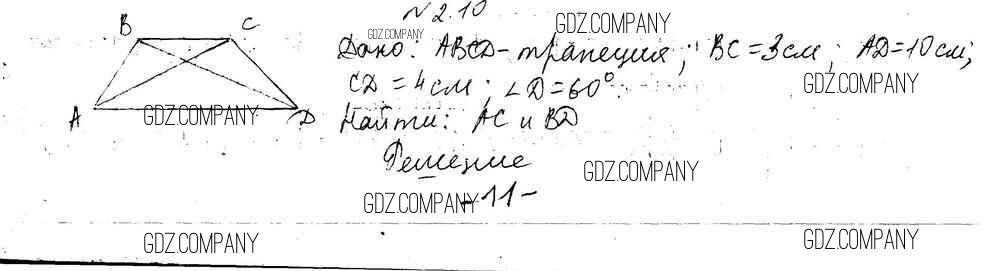 № 2.10
GDZ.COMPANY
B C
GDZ.COMPANY
Дано: ABCD - трапеция; BC = 3 см; AD = 10 см;
CD = 4 см; ∠D = 60°.
GDZ.COMPANY
A GDZ.COMPANY D
Найти: AC и BD
Решение
GDZ.COMPANY
GDZ.COMPANY
-11-
GDZ.COMPANY
GDZ.COMPANY